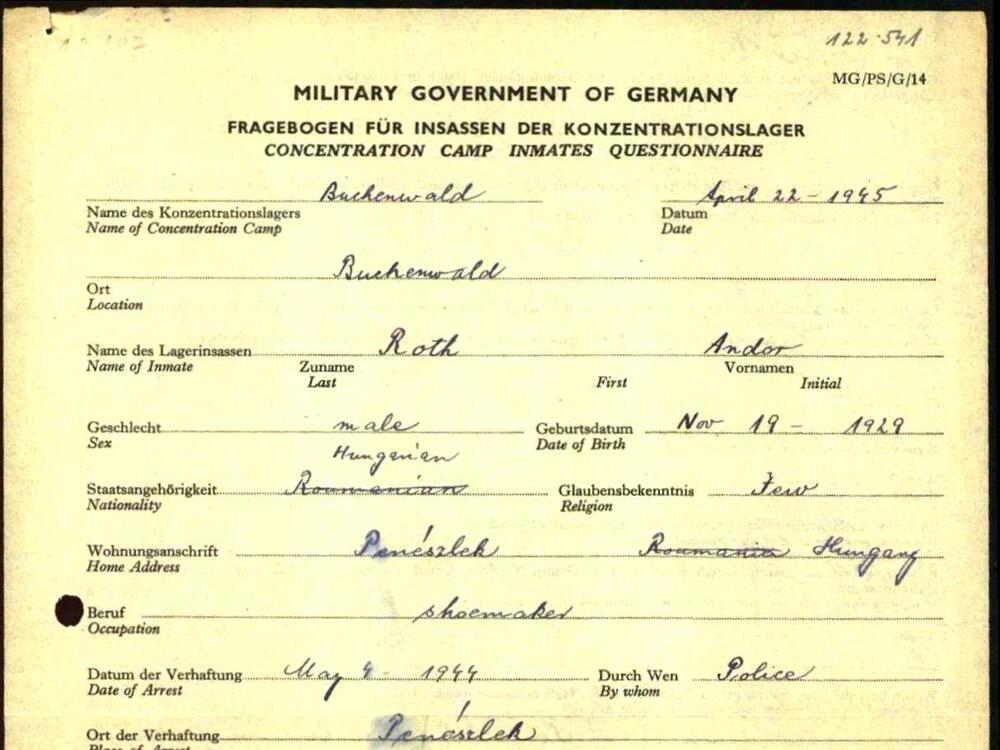 122.541
MG/PS/G/14
MILITARY GOVERNMENT OF GERMANY
FRAGEBOGEN FÜR INSASSEN DER KONZENTRATIONSLAGER
CONCENTRATION CAMP INMATES QUESTIONNAIRE
Buchenwald April 22 - 1945
Name des Konzentrationslagers Datum
Name of Concentration Camp Date
Buchenwald
Ort
Location
Name des Lagerinsassen Roth Andor
Name of Inmate Zuname Vornamen
Last First Initial
Geschlecht male Geburtsdatum Nov 19 - 1929
Sex Date of Birth
Hungarian
Staatsangehörigkeit Roumanian Glaubensbekenntnis Jew
Nationality Religion
Wohnungsanschrift Penészlek Roumania Hungary
Home Address
Beruf shoemaker
Occupation
Datum der Verhaftung May 4 - 1944 Durch Wen Police
Date of Arrest By whom
Ort der Verhaftung Penészlek
Place of Arrest